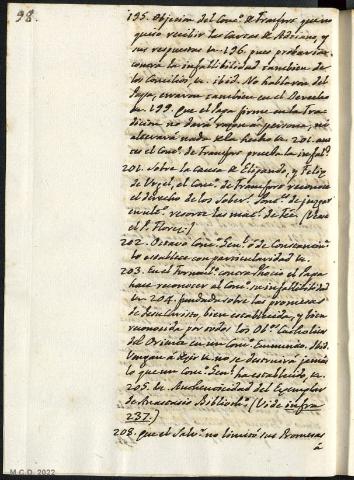 98.
195. Objecion del Conc.º de Francfort que no
quiso recibir las Cartas de Adriano, y
sus respuestas n. 196. que probarian
contra la infalibilidad tambien de
los Concilios, n. ibid. No hablaria del
Papa, errarian tambien en el Derecho
n. 199. Que el Papa firme en la Tra-
dicion no dará ninguna persona, ni
alterará nada de lo hecho n. 201. an-
tes el Conc.º de Francfort prueba la infal.
201. Sobre la causa de Elipando, y Felix
de Urgel, el Conc.º de Francfort reconoce
el derecho de los Sober. Pont.s de juzgar
en las mat.s de Fee. (Vease
el P. Florez.)
202. Octavo Conc. Gen.l 4.º de Constantin.
lo establece con particularidad n.
203. En el Formul.º contra Phocio el Papa
hace reconocer al Conc.º su infalibilidad
n. 204. fundada sobre las promesas
de Jesu Christo, bien establecida, y bien
reconocida por todos los Ob.os Catholicos
del Oriente en un Conc. Ecumenico. Ibid.
Vengan á dezir n. no se destruirá jamás
lo que un Conc.º Gen.l ha establecido, n.
205. n. Autenticidad del Exemplar
de Anastasio Bibliot. (Vide infra
237.)
208. que el Salv.r no limitó sus Promesas
á
M.C.D. 2022